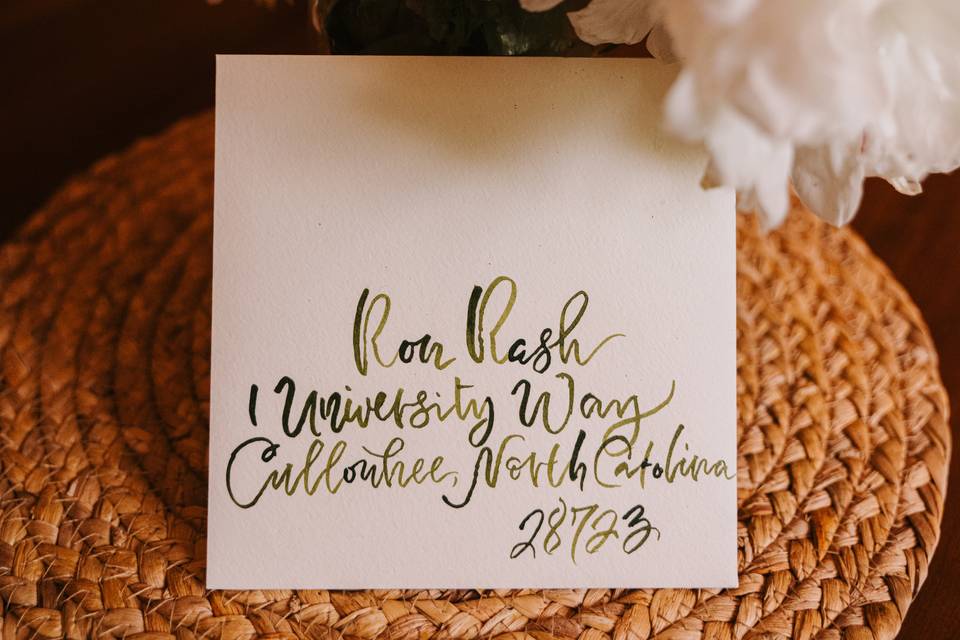 Ron Rash
1 University Way
Cullowhee, North Carolina
28723